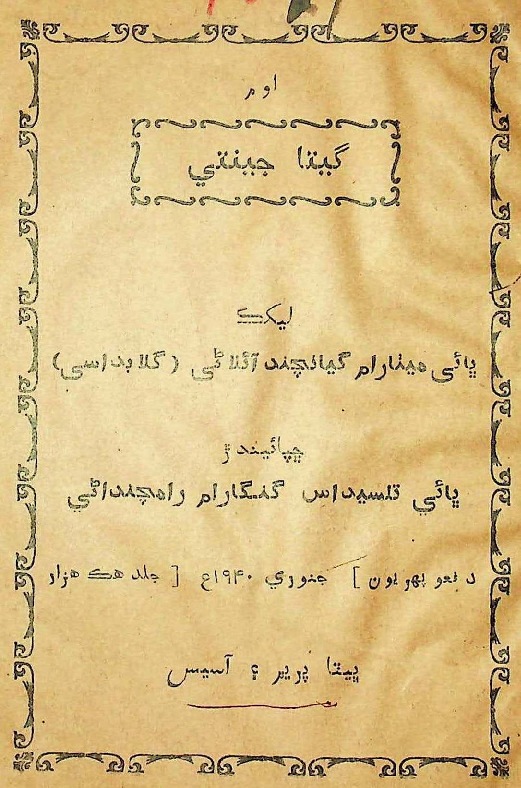 اوم
گيتا جينتي
ليکڪ
ڀائي ميٺارام گيانچند آئلاڻي (گلابداسي)
ڇپائيندڙ
ڀائي تلسيداس گنگارام رامچنداڻي
دفعو پهريون] جنوري ۱۹۴۰ع [جلد هڪ هزار
ڀيٽا پريم ۽ آسيس